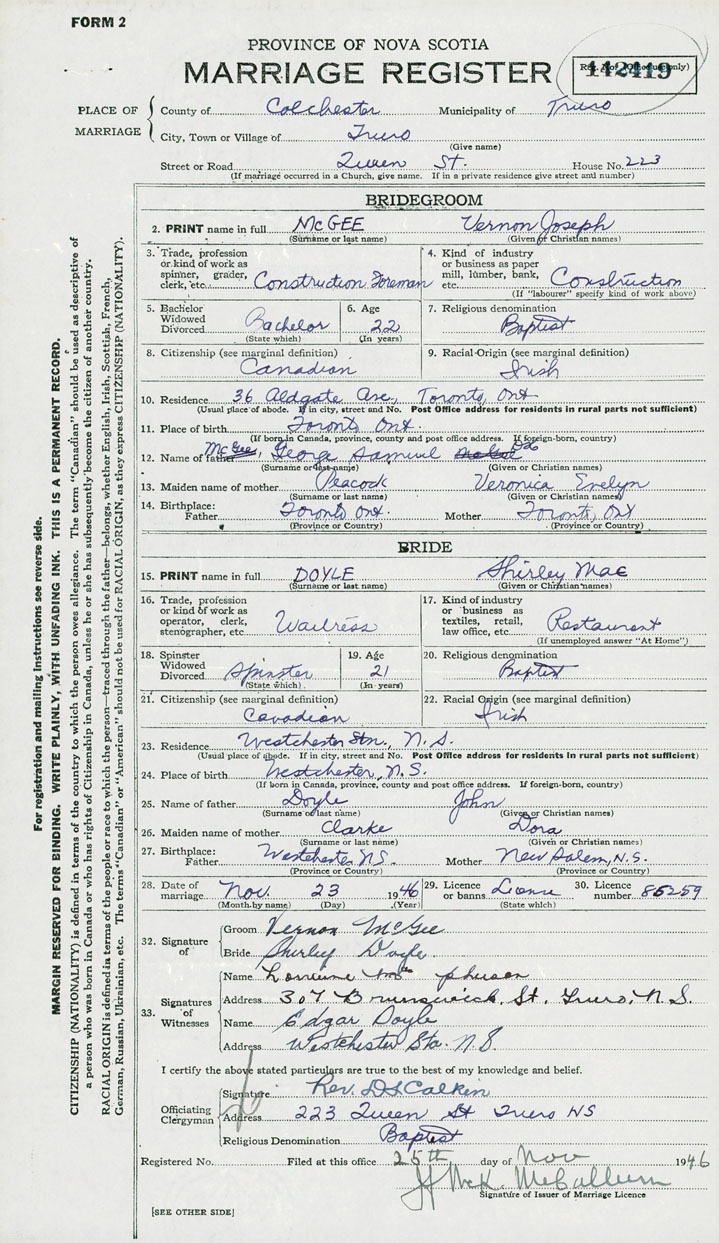 FORM 2
PROVINCE OF NOVA SCOTIA
MARRIAGE REGISTER
Reg. No. (Office use only)
142419
PLACE OF MARRIAGE
County of Colchester Municipality of Truro
City, Town or Village of Truro
(Give name)
Street or Road Queen St. House No. 223
(If marriage occurred in a Church, give name. If in a private residence give street and number)
BRIDEGROOM
2. PRINT name in full McGEE Vernon Joseph
(Surname or last name) (Given or Christian names)
3. Trade, profession or kind of work as spinner, grader, clerk, etc. Construction Foreman
4. Kind of industry or business as paper mill, lumber, bank, etc. Construction
(If "labourer" specify kind of work above)
5. Bachelor Widowed Divorced Bachelor
(State which)
6. Age 22
(In years)
7. Religious denomination
Baptist
8. Citizenship (see marginal definition)
Canadian
9. Racial Origin (see marginal definition)
Irish
10. Residence 36 Aldgate Ave, Toronto, Ont
(Usual place of abode. If in city, street and No. Post Office address for residents in rural parts not sufficient)
11. Place of birth Toronto Ont.
(If born in Canada, province, county and post office address. If foreign-born, country)
12. Name of father McGee, George Samuel
(Surname or last name) (Given or Christian names)
13. Maiden name of mother Peacock Veronica Evelyn
(Surname or last name) (Given or Christian names)
14. Birthplace: Father Toronto Ont. Mother Toronto, Ont
(Province or Country) (Province or Country)
BRIDE
15. PRINT name in full DOYLE Shirley Mae
(Surname or last name) (Given or Christian names)
16. Trade, profession or kind of work as operator, clerk, stenographer, etc. Waitress
17. Kind of industry or business as textiles, retail, law office, etc. Restaurant
(If unemployed answer "At Home")
18. Spinster Widowed Divorced Spinster
(State which)
19. Age 21
(In years)
20. Religious denomination
Baptist
21. Citizenship (see marginal definition)
Canadian
22. Racial Origin (see marginal definition)
Irish
23. Residence Westchester Stn., N.S.
(Usual place of abode. If in city, street and No. Post Office address for residents in rural parts not sufficient)
24. Place of birth Westchester, N.S.
(If born in Canada, province, county and post office address. If foreign-born, country)
25. Name of father Doyle John
(Surname or last name) (Given or Christian names)
26. Maiden name of mother Clarke Dora
(Surname or last name) (Given or Christian names)
27. Birthplace: Father Westchester N.S. Mother New Salem, N.S.
(Province or Country) (Province or Country)
28. Date of marriage Nov. 23 1946
(Month by name) (Day) (Year)
29. Licence or banns License
(State which)
30. Licence number 86259
32. Signature of
Groom Vernon McGee
Bride Shirley Doyle
33. Signatures of Witnesses
Name Lorraine
Address 307 Brunswick, St. Truro, N.S.
Name Edgar Doyle
Address Westchester Sta. N.S.
I certify the above stated particulars are true to the best of my knowledge and belief.
Officiating Clergyman
Signature Rev. D L Calkin
Address 223 Queen St Truro NS
Religious Denomination Baptist
Registered No. Filed at this office 25th day of Nov 1946
McCallum
Signature of Issuer of Marriage Licence
[SEE OTHER SIDE]
For registration and mailing instructions see reverse side.
MARGIN RESERVED FOR BINDING. WRITE PLAINLY, WITH UNFADING INK. THIS IS A PERMANENT RECORD.
CITIZENSHIP (NATIONALITY) is defined in terms of the country to which the person owes allegiance. The term "Canadian" should be used as descriptive of
a person who was born in Canada or who has rights of Citizenship in Canada, unless he or she has subsequently become the citizen of another country.
RACIAL ORIGIN is defined in terms of the people or race to which the person—traced through the father—belongs, whether English, Irish, Scottish, French,
German, Russian, Ukrainian, etc. The terms "Canadian" or "American" should not be used for RACIAL ORIGIN, as they express CITIZENSHIP (NATIONALITY).